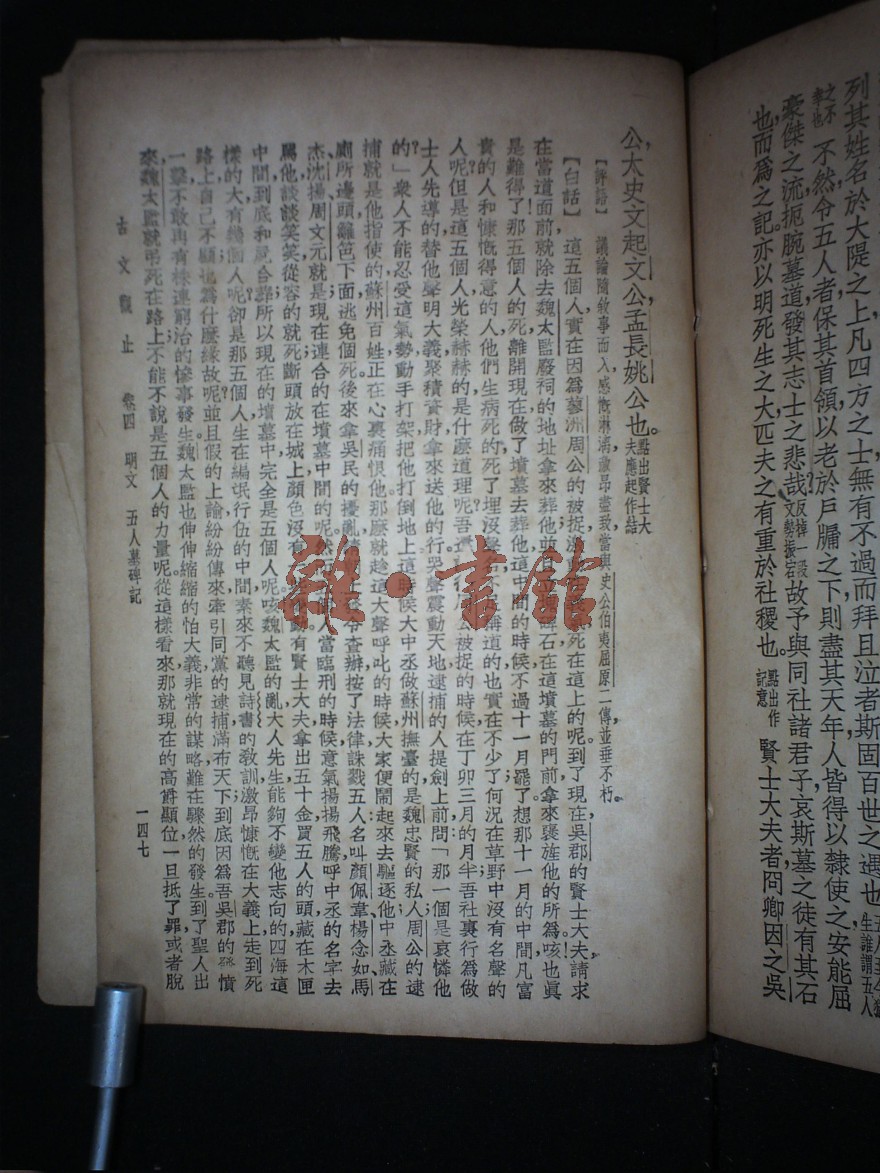 列其姓名於大隄之上凡四方之士無有不過而拜且泣者斯固百世之遇也
之不幸也 不然令五人者保其首領以老於戶牖之下則盡其天年人皆得以隸使之安能屈
豪傑之流扼腕墓道發其志士之悲哉反掉一段文勢振宕故予與同社諸君子哀斯墓之徒有其石
也而爲之記亦以明死生之大匹夫之有重於社稷也。點出作記意 賢士大夫者冏卿因之吳
公太史文起文公孟長姚公也。點出賢士大夫應起作結
【評語】議論隨敘事而入感慨淋漓激昂盡致當與史公伯夷屈原二傳並垂不朽。
【白話】這五個人實在因為蓼洲周公的被捉激 死在這上的呢到了現在吳郡的賢士大夫請求
在當道面前就除去魏太監廢祠的地址拿來葬他並且 石在這墳墓的門前拿來襃旌他的所為咳也眞
是難得了那五個人的死離開現在做了墳墓去葬他這中間的時候不過十一月罷了想那十一月的中間凡富
貴的人和慷慨得意的人他們生病死的死了埋沒 稱道的也實在不少了何況在草野中沒有名聲的
人呢但是這五個人光榮赫赫的是什麼道理呢吾還 被捉的時候在丁卯三月的月半吾社裏行為做
士人先導的替他聲明大義聚積資財拿來送他的行哭聲震動天地逮捕的人提劍上前問「那一個是哀憐他
的」衆人不能忍受這氣勢動手打架把他打倒地上這時候大中丞做蘇州撫臺的是魏忠賢的私人周公的逮
捕就是他指使的蘇州百姓正在心裏痛恨他那麼就趁這大聲呼叱的時候大家便鬧起來去驅逐他中丞藏在
廁所邊頭籬笆下面逃免個死後來拿吳民的擾亂 查辦按了法律誅戮五人名叫顏佩韋楊念如馬
杰沈揚周文元就是現在連合的在墳墓中間的呢然 人當臨刑的時候意氣揚揚飛騰呼中丞的名字去
罵他談談笑笑從容的就死斷頭放在城上顏色沒有 有賢士大夫拿出五十金買五人的頭藏在木匣
中間到底和屍合葬所以現在的墳墓中完全是五個人呢咳魏太監的亂大人先生能夠不變他志向的四海這
樣的大有幾個人呢卻是那五個人生在編氓行伍的中間素來不聽見詩書的敎訓激昂慷慨在大義上走到死
路上自己不顧也為什麼緣故呢並且假的上諭紛紛傳來牽引同黨的逮捕滿布天下到底因為吾吳郡的發憤
一擊不敢再有株連窮治的慘事發生魏太監也伸伸縮縮的怕大義非常的謀略難在驟然的發生到了聖人出
來魏太監就弔死在路上不能不說是五個人的力量呢從這樣看來那就現在的高爵顯位一旦抵了罪或者脫
古文觀止 卷四 明文 五人墓碑記
一四七